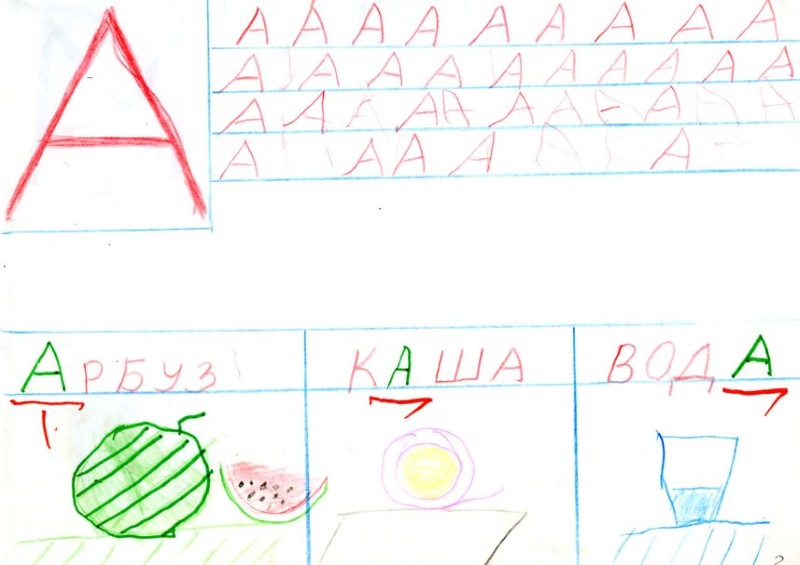 А
А А А А А А А А А
А А А А А А А А А А
А А А А А А А А А А
А А А А А А
АРБУЗ КАША ВОДА